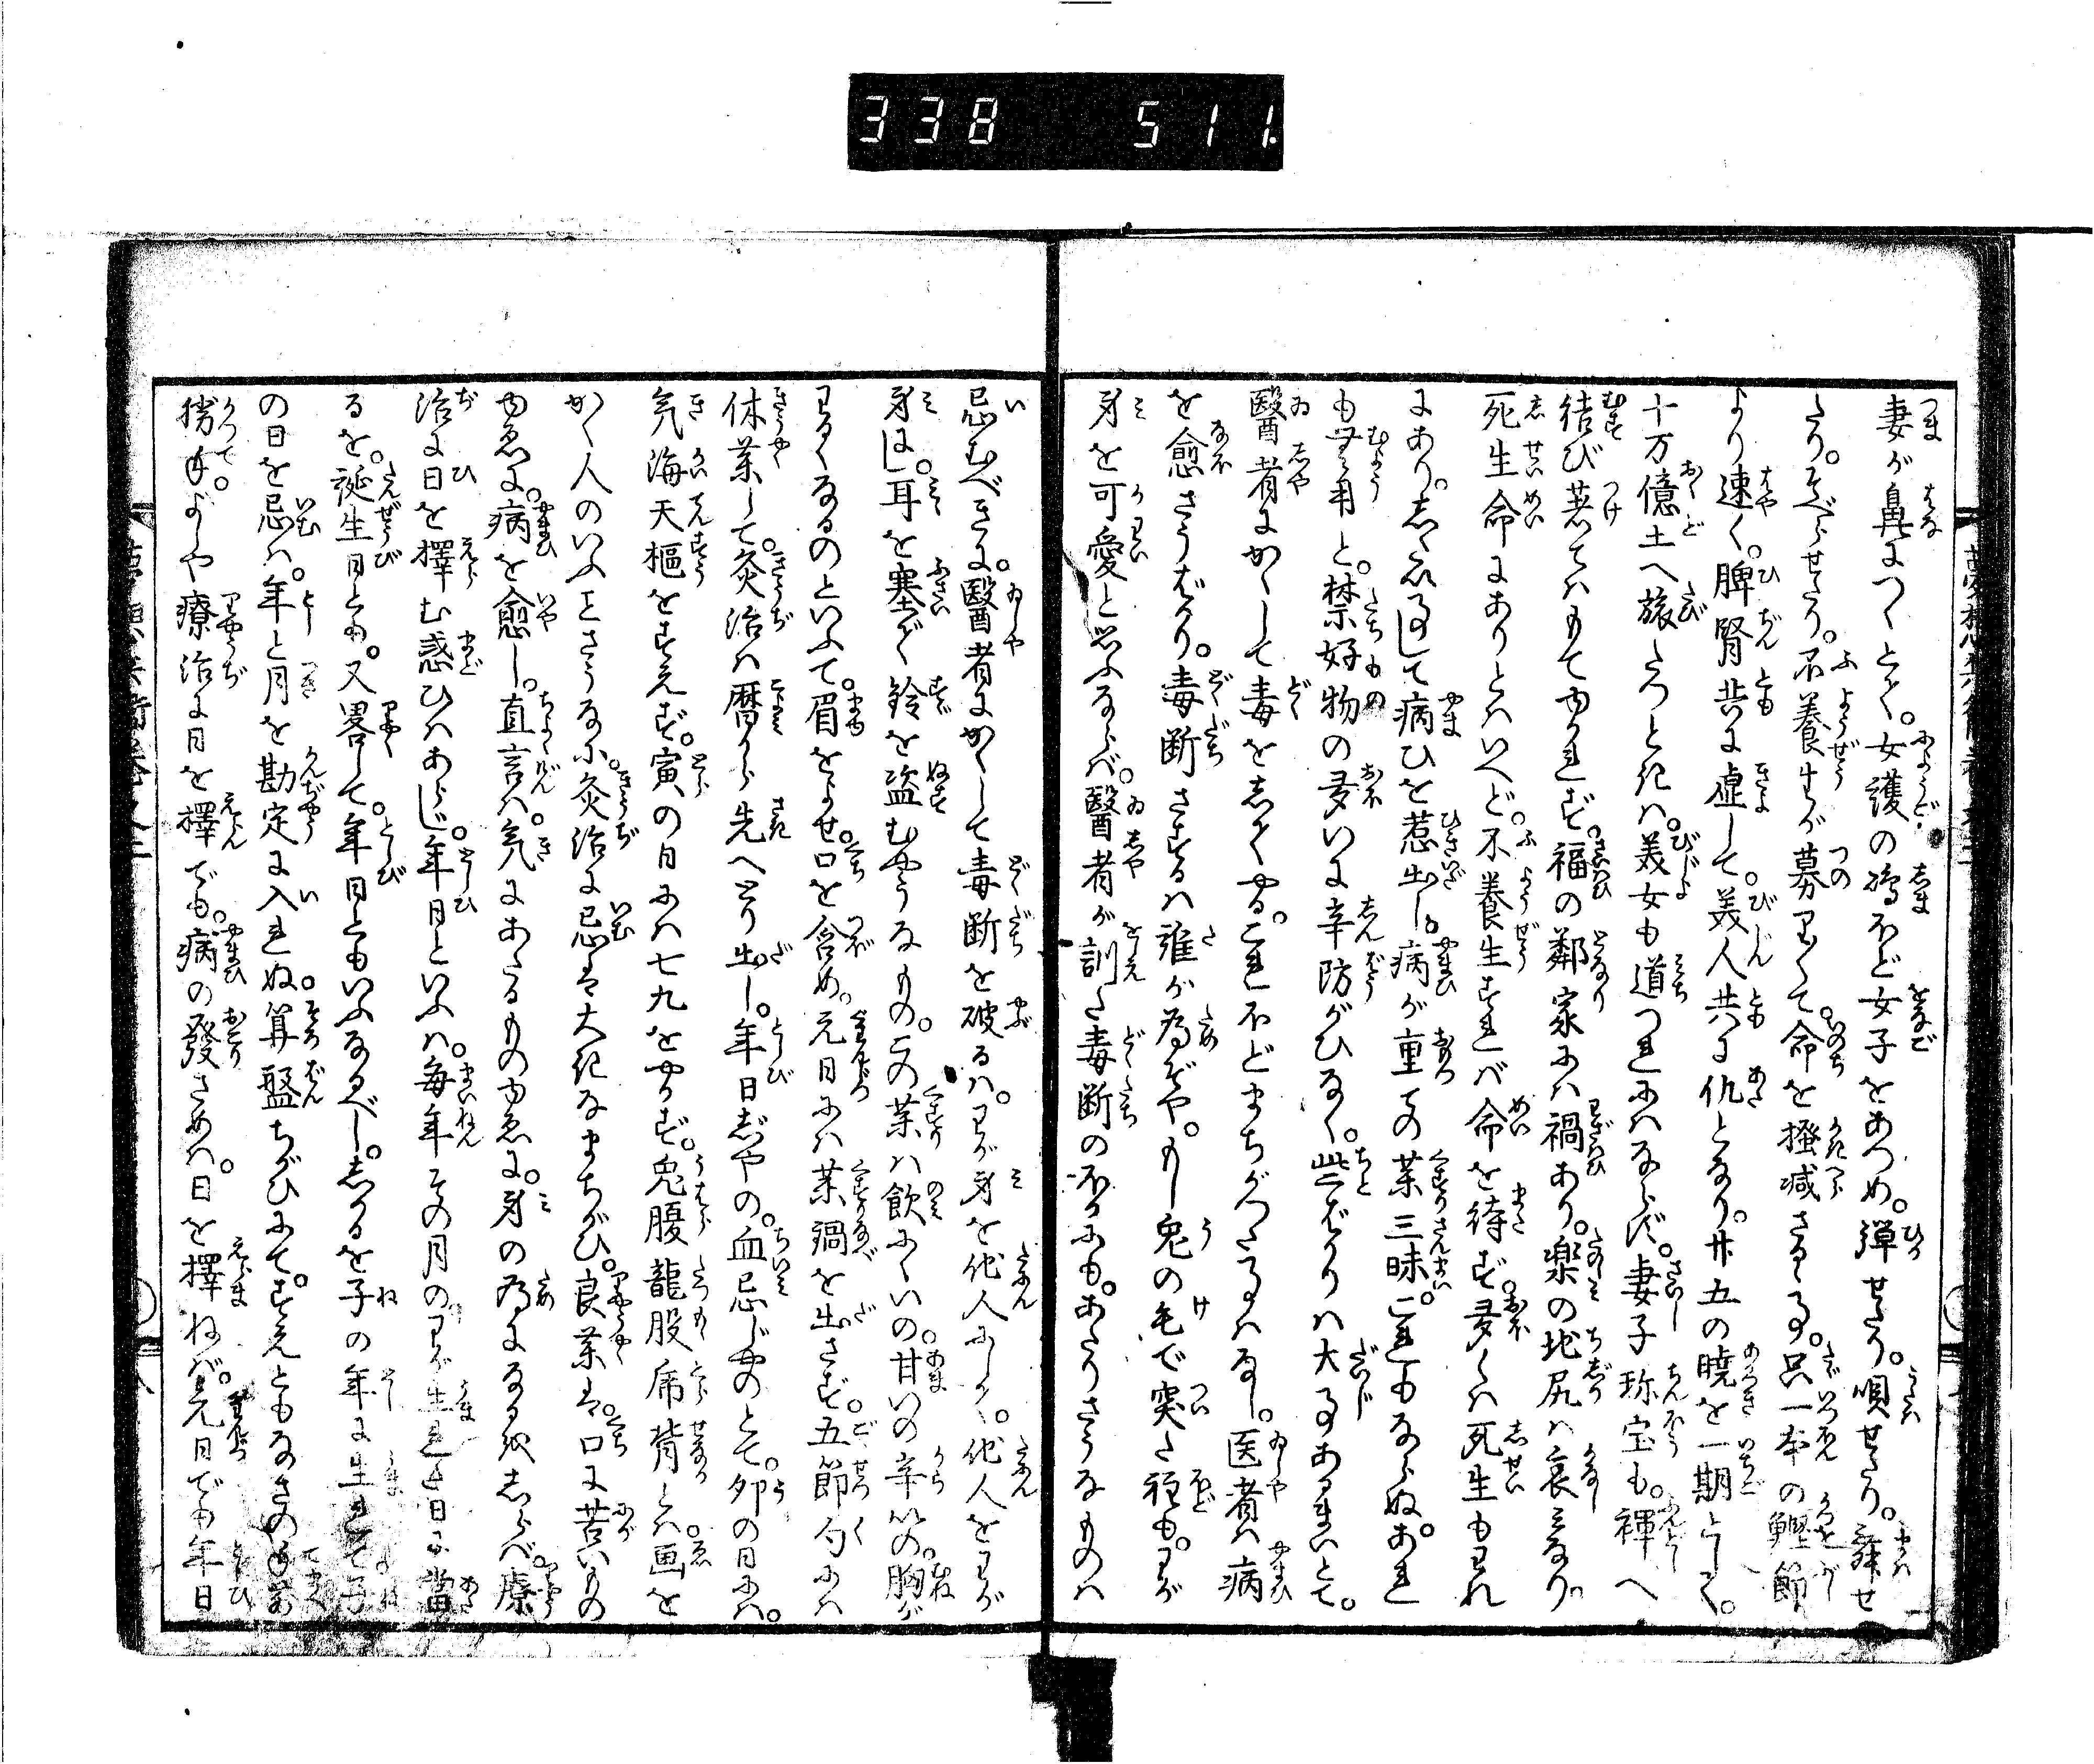 338 511.
妻が鼻につくとく。女護の嶋ほど女子をあつめ。弾せたり。唄せたり。舞せ
たり。そべらせたり。不養生が募りくて。命を掻減さるゝ事。只一本の鰹節
より速く。脾腎共に虚して。美人共に仇となり。廿五の暁を一期として。
十万億土へ旅だつときは。美女も道つれにはならず。妻子珍宝も。褌へ
結び着てはもてゆかれず。福の鄰家には禍あり。楽の地尻は哀みなり。
死生命にありとはいへど。不養生すれば命を待ず。多くは死生もわれ
にあり。しかるして病ひを惹出し。病が重るの薬三昧。これもならぬ。あれ
も無用と。禁好物の多いに辛防がひなく。些ばかりは大事あるまいとて。
醫者にかくして毒をしてやる。これほどまちがつたる事はなし。医者は病
を愈さうばかり。毒断さするは誰が為ぞや。もし兎の毛で突た程も。わが
身を可愛と思ふならば。醫者が訓た毒断の外にも。あたりさうなものは
忌むべきに。醫者にかくして毒断を破るは。わが身を他人にしく。他人をわが
身にし。耳を塞ぐ鈴を盗むやうなもの。この薬は飲にくいの。甘いの辛いの。胸が
わるくなるのといふて。眉をよせ。口を含め。元日には薬鍋を出さず。五節句には
休薬して。灸治は暦から先へとり出し。年日じやの。血忌じやのとて。卯の日には。
気海天樞をすえず。寅の日には七九をやかず。兎腹龍股虎背とは画を
かく人のいふことさうなに。灸治に忌は大きなまちがひ。良薬は。口に苦いもの
ゆゑに。病を愈し。直言は。気にあたるものゆゑに。身の為になる。しからば。療
治に日を擇む惑ひはあらじ。年日といふは。毎年その月のわが生れた日に當
るを。誕生日とも。又畧して。年日ともいふなるべし。しかるを子の年に生れて子
の日を忌は。年と月を勘定に入れぬ。算盤ちがひにて。すえともなさの手前
勝手。よしや療治に日を擇でも。病の發さめは。日を擇ねば。元日でも年日